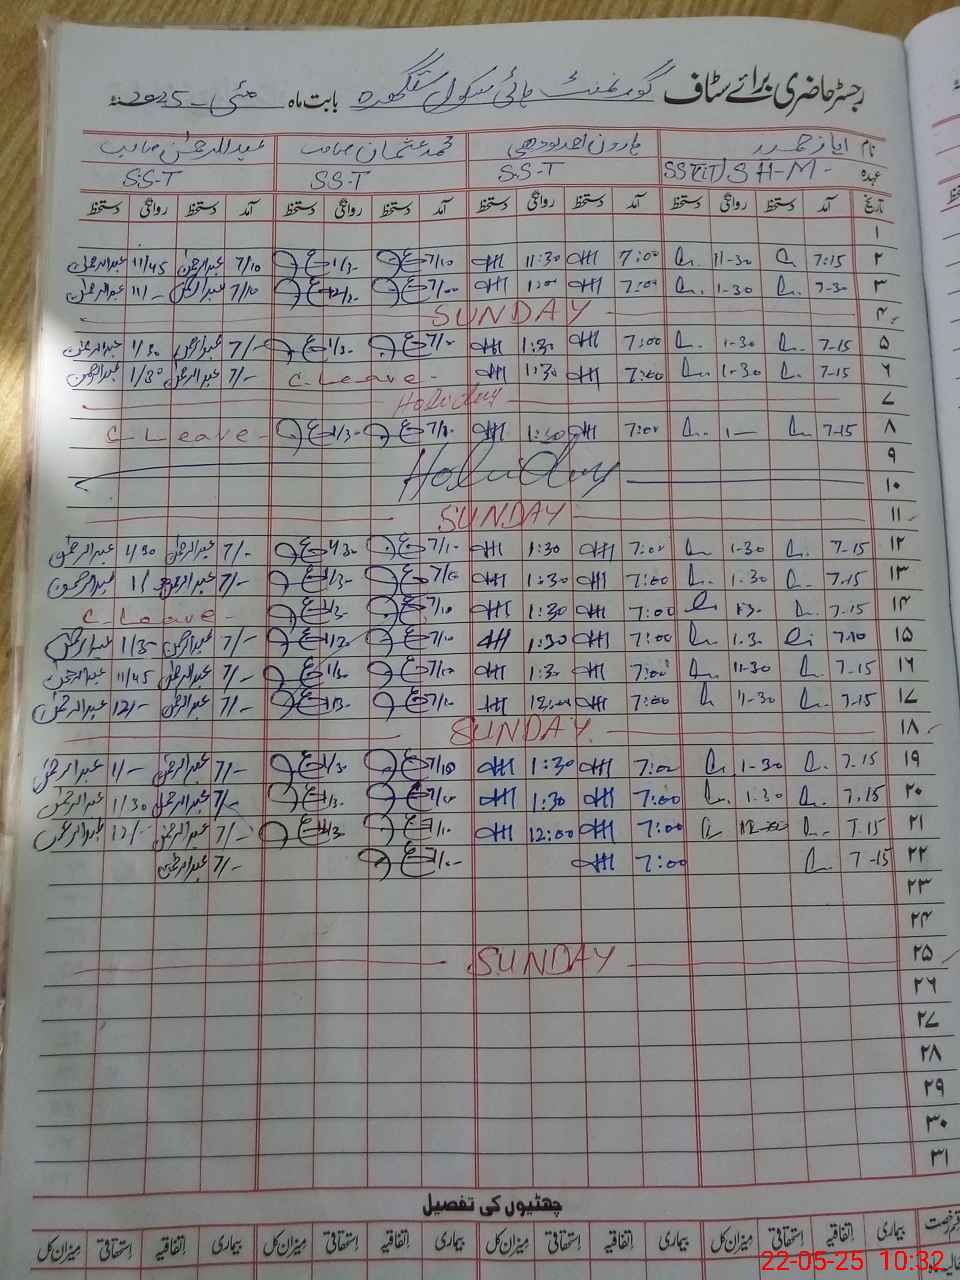 رجسٹر حاضری برائے سٹاف گورنمنٹ ہائی سکول بابت ماہ مئی 2025ء
نام ایاز حمید ہارون احمد لودھی محمد عثمان صاحب عبدالرحمٰن صاحب
عہدہ H-M- S.S.T S.S.T S.S.T
تاریخ آمد دستخط روانگی دستخط آمد دستخط روانگی دستخط آمد دستخط روانگی دستخط آمد دستخط روانگی دستخط
۱
۲ 7:15 11-30 7:00 11:30 7/10 1/30 7/10 عبدالرحمٰن 11/45 عبدالرحمٰن
۳ 7-30 1-30 7:00 7/00 7/10 عبدالرحمٰن 11/- عبدالرحمٰن
۴ SUNDAY
۵ 7-15 1-30 7:00 1:30 7/- 1/30 7/- عبدالرحمٰن 1/30 عبدالرحمٰن
۶ 7-15 1-30 7:00 1:30 C-Leave- 7/- عبدالرحمٰن 1/30 عبدالرحمٰن
۷ Holiday
۸ 7-15 1- 7:00 1:30 7/10 1/30 C-Leave-
۹ Holiday
۱۰
۱۱ SUNDAY
۱۲ 7-15 1-30 7:00 1:30 7/10 1/30 7/- عبدالرحمٰن 1/30 عبدالرحمٰن
۱۳ 7-15 1-30 7:00 1:30 7/10 1/30 7/- عبدالرحمٰن عبدالرحمٰن
۱۴ 7-15 1-30 7:00 1:30 7/10 1/30 C-Leave-
۱۵ 7-10 1-30 7:00 1:30 7/10 1/30 7/- عبدالرحمٰن 1/30 عبدالرحمٰن
۱۶ 7-15 11-30 7:00 1:30 7/10 1/30 7/- عبدالرحمٰن 11/45 عبدالرحمٰن
۱۷ 7-15 11-30 7:00 12:00 7/10 1/30 7/- عبدالرحمٰن 12/- عبدالرحمٰن
۱۸ SUNDAY
۱۹ 7-15 1-30 7:00 1:30 7/10 1/30 7/- عبدالرحمٰن 1/- عبدالرحمٰن
۲۰ 7-15 1-30 7:00 1:30 7/10 1/30 7/- عبدالرحمٰن 1/30 عبدالرحمٰن
۲۱ 7-15 7:00 12:00 7/10 1/30 7/- عبدالرحمٰن 12/- عبدالرحمٰن
۲۲ 7-15 7:00 7/10- 7/- عبدالرحمٰن
۲۳
۲۴
۲۵ SUNDAY
۲۶
۲۷
۲۸
۲۹
۳۰
۳۱
چھٹیوں کی تفصیل
قسم رخصت بیماری اتفاقیہ استحقاقی میزان کل بیماری اتفاقیہ استحقاقی میزان کل بیماری اتفاقیہ استحقاقی میزان کل بیماری اتفاقیہ استحقاقی میزان کل
22-05-25 10:32